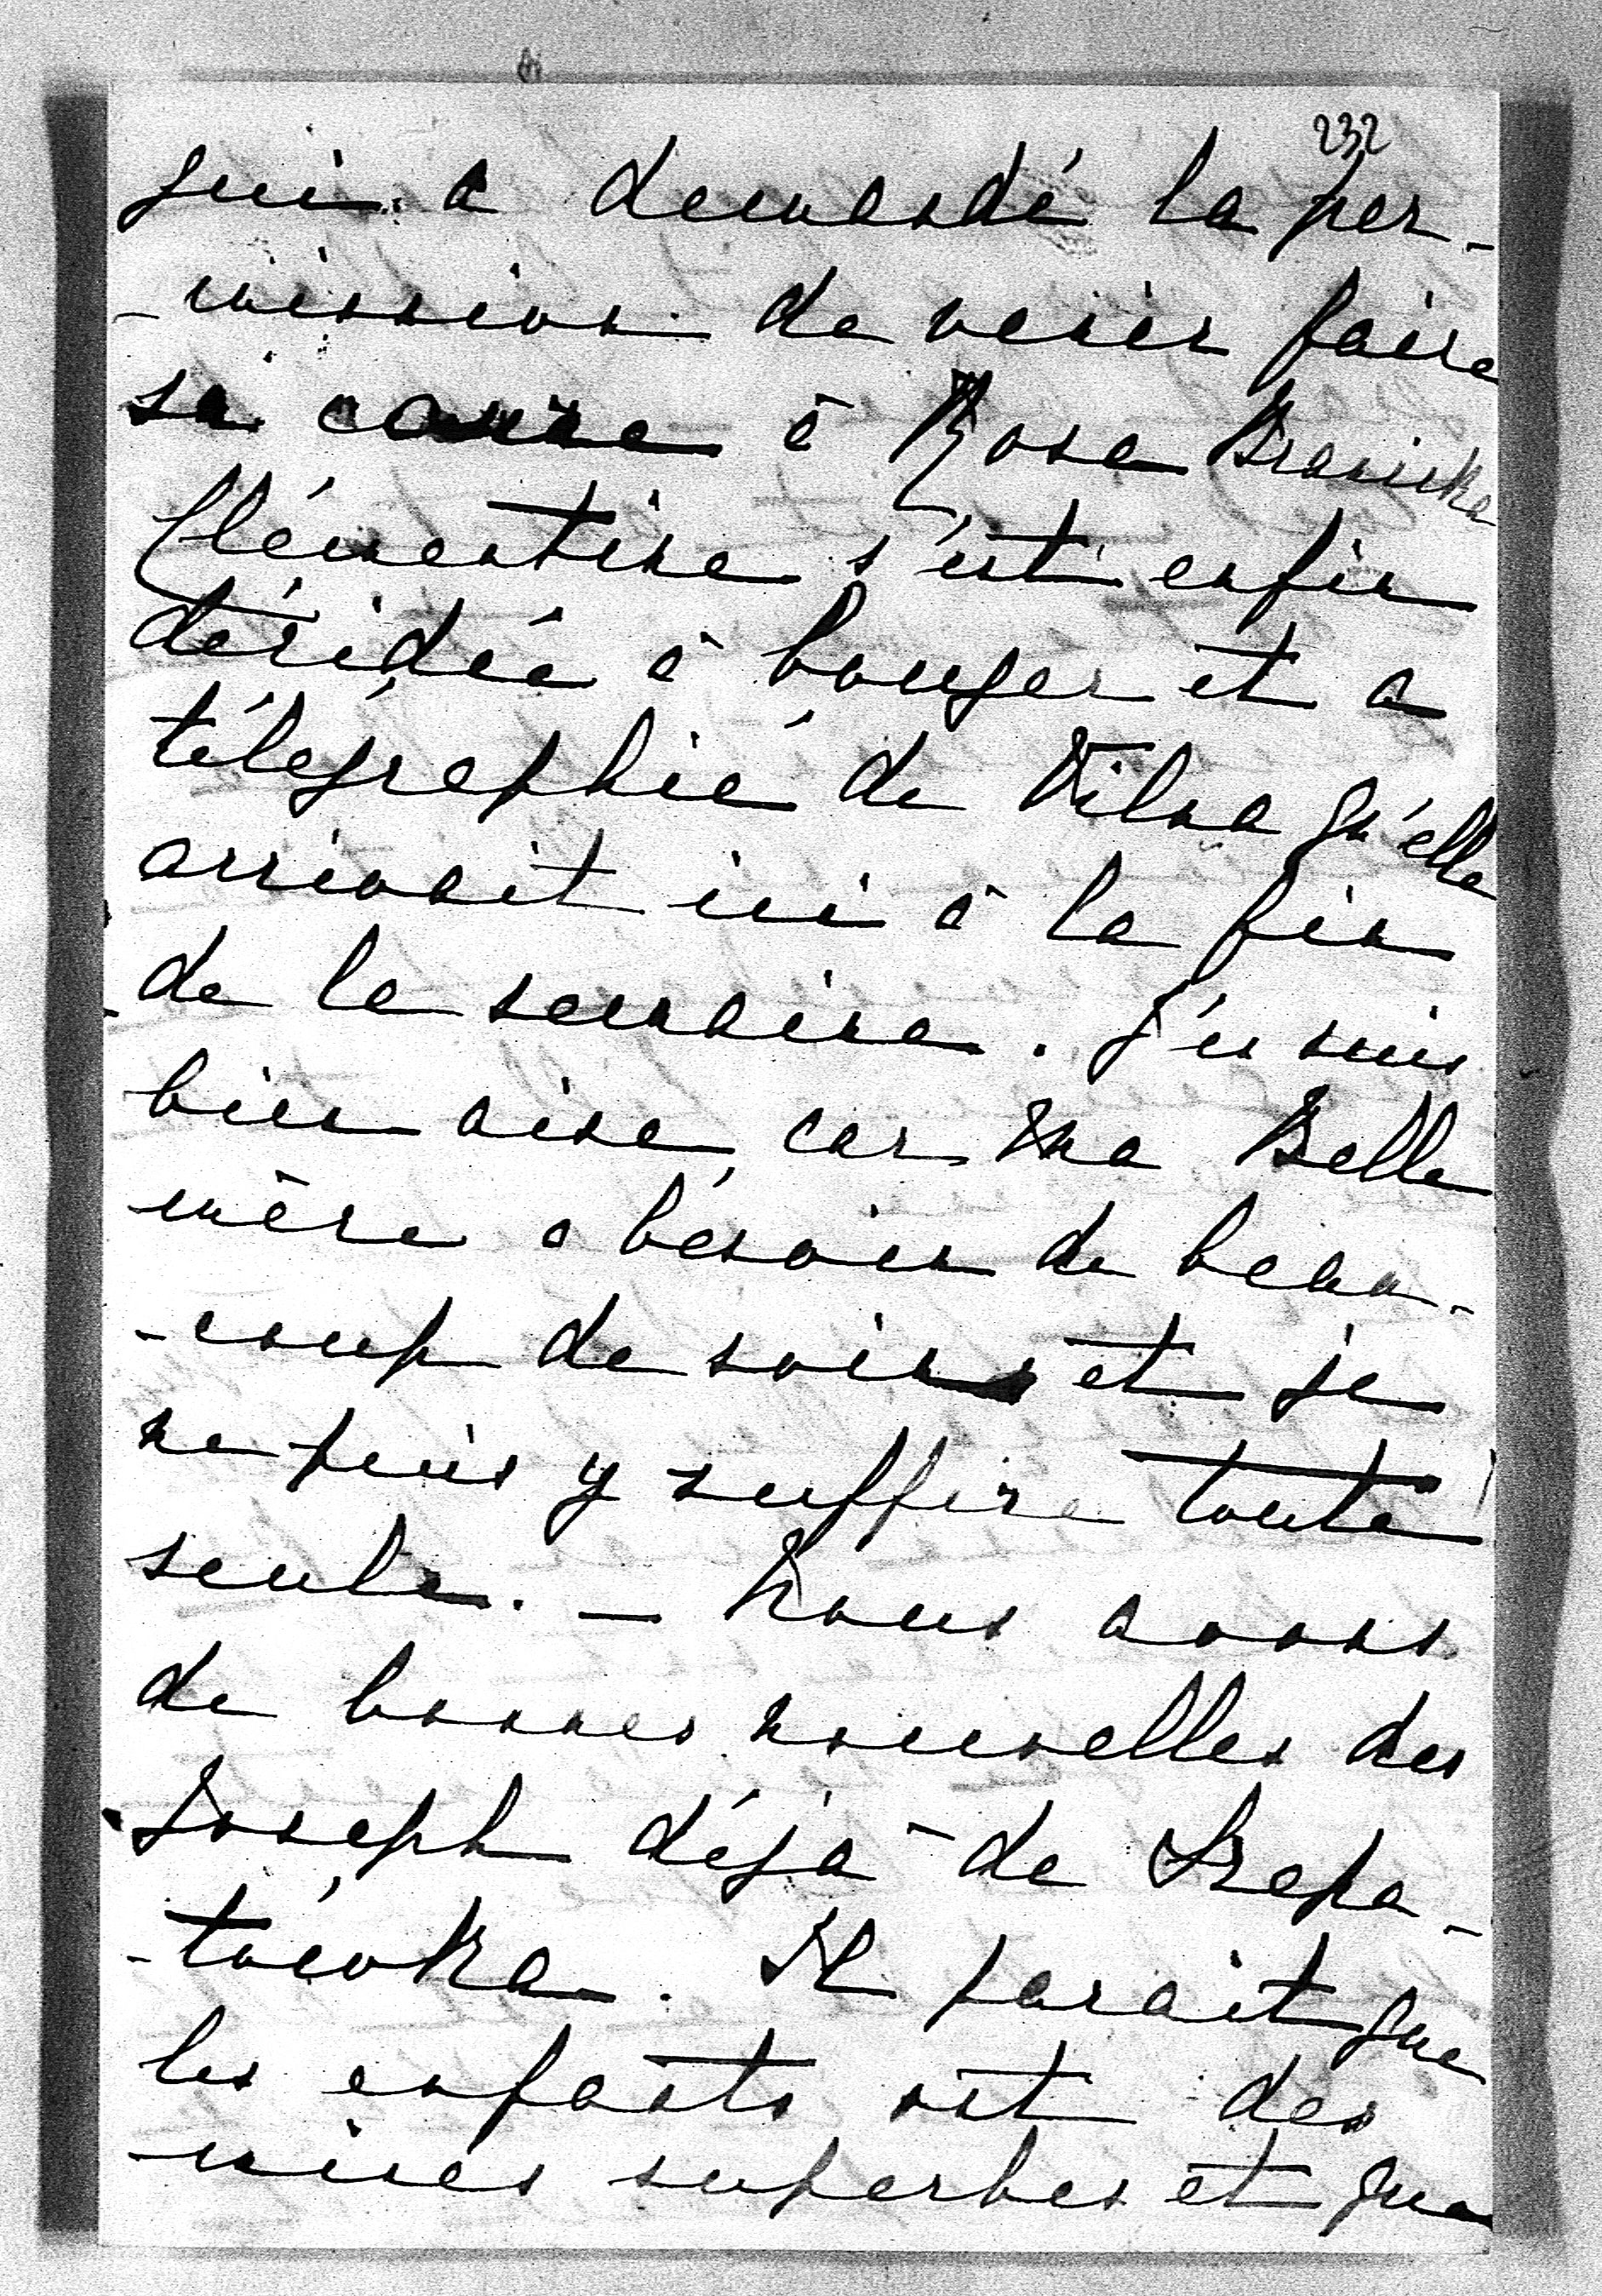 232
qui a demandé la per-
-mission de venir faire
sa cour à Rosa Branicka
Clémentine s'est enfin
décidée à bouger et a
télégraphié de Vilna qu'elle
arrivait ici à la fin
de la semaine. J'en suis
bien aise, car Ma Belle
mère a besoin de beau-
-coup de soins et je
ne puis y suffire toute
seule. — Nous avons
de bonnes nouvelles des
Joseph déjà de Trepa-
-towka. Il parait que
les enfants ont des
mines superbes et que